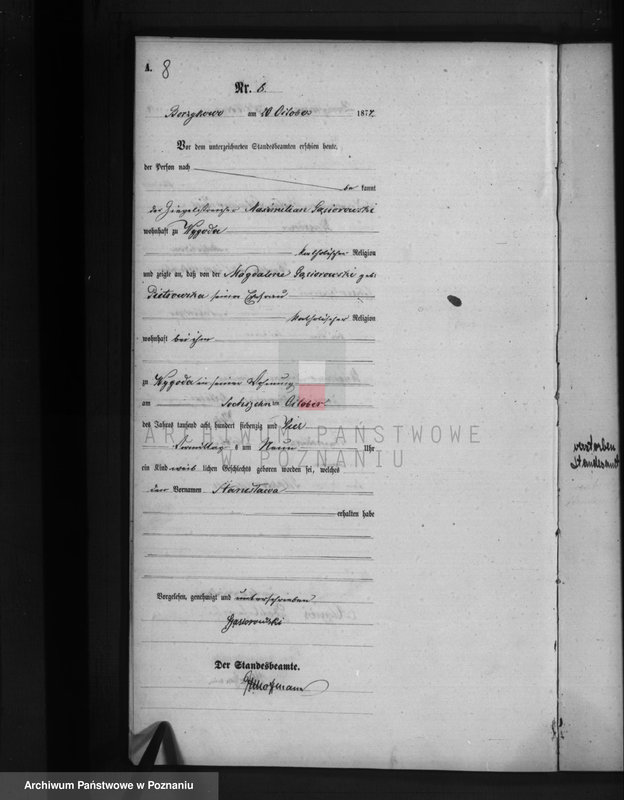 A. 8
Nr. 8.
Borzykowo am 20 October 1874
Vor dem unterzeichneten Standesbeamten erschien heute,
der Person nach
be kannt
der Maximilian Gąsiorowski
wohnhaft zu Wygoda
katholischer Religion
und zeigte an, daß von der Magdalene Gąsiorowski geb.
Pietrowska seiner Ehefrau
katholischer Religion
wohnhaft bei ihm
zu Wygoda in seiner Wohnung
am Sechszehn ten October
des Jahres tausend acht hundert siebenzig und Vier
Vormittags um Neun Uhr
ein Kind weib lichen Geschlechts geboren worden sei, welches
den Vornamen Stanisława
erhalten habe
Vorgelesen, genehmigt und unterschrieben
Gąsiorowski
Der Standesbeamte.
Hoffmann
verstorben
Standesamt
ARCHIWUM PAŃSTWOWE
W POZNANIU
Archiwum Państwowe w Poznaniu